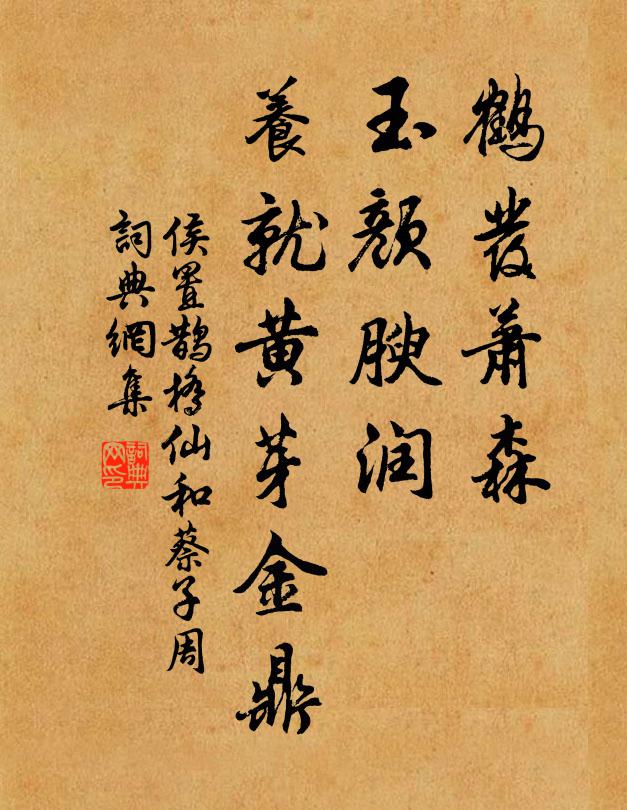 鶴發蕭森
玉顔腴润
養就黄芽金鼎
侯置鵲橋仙和蔡子周
詞典網集
詞典网印